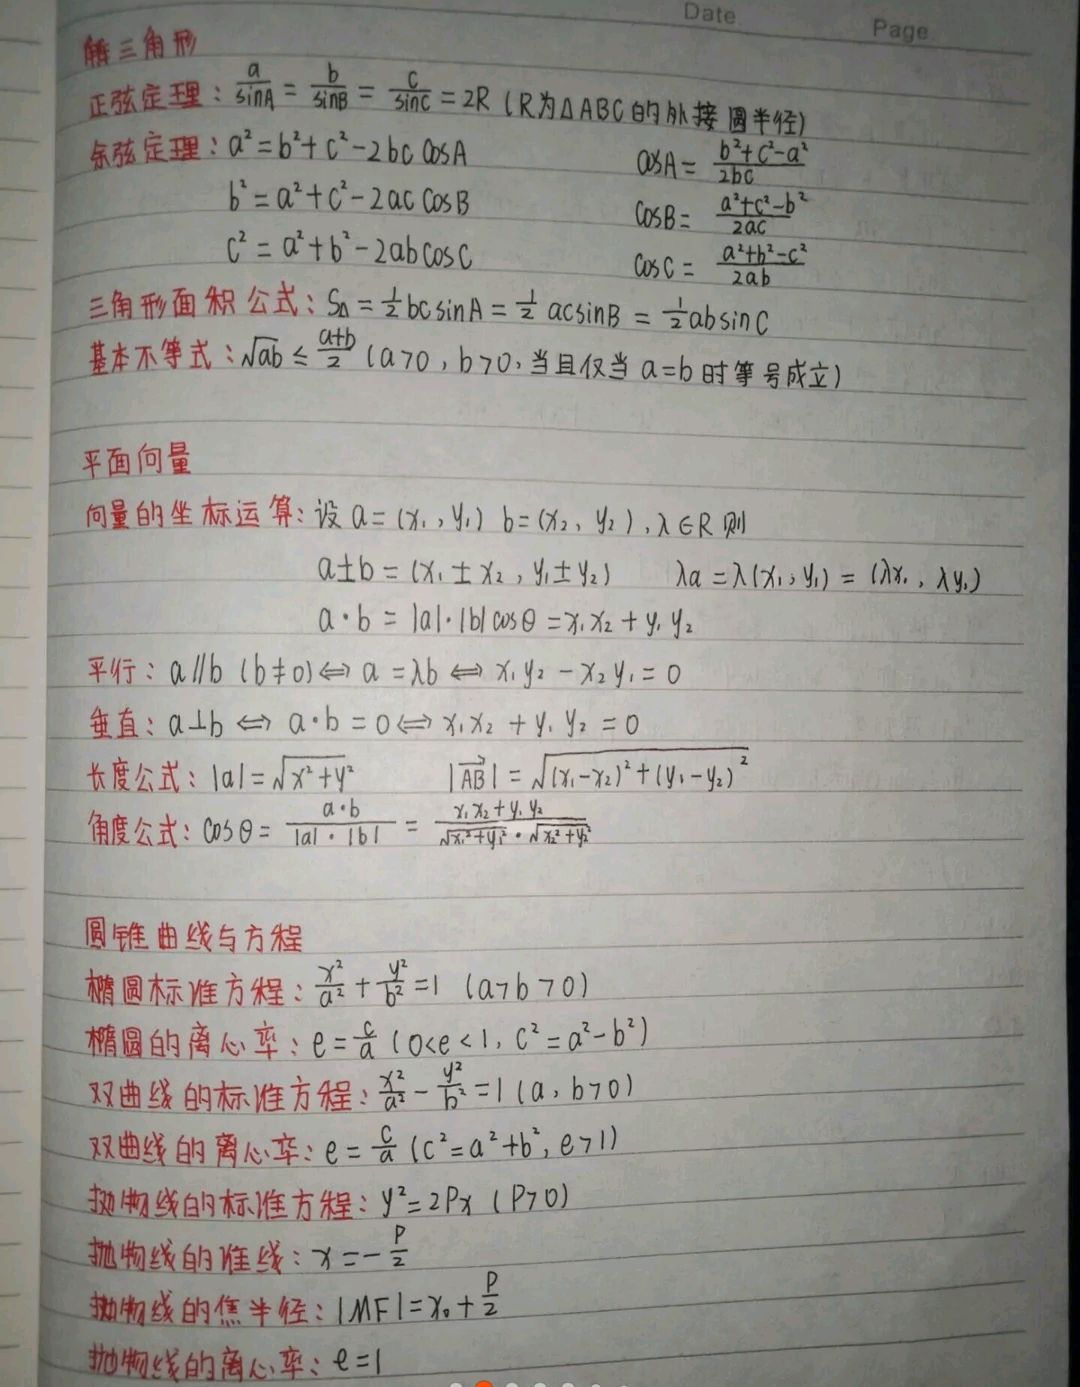 Date
Page
解三角形
正弦定理：a/sinA = b/sinB = c/sinC = 2R（R为△ABC的外接圆半径）
余弦定理：a²=b²+c²-2bc cosA cosA= (b²+c²-a²)/2bc
b²=a²+c²-2ac cosB cosB= (a²+c²-b²)/2ac
c²=a²+b²-2ab cosC cosC= (a²+b²-c²)/2ab
三角形面积公式：S△=½bcsinA=½acsinB=½absinC
基本不等式：√ab ≤ (a+b)/2（a>0，b>0，当且仅当a=b时等号成立）
平面向量
向量的坐标运算：设a=(x₁,y₁) b=(x₂,y₂),λ∈R则
a±b=(x₁±x₂,y₁±y₂) λa=λ(x₁,y₁)=(λx₁,λy₁)
a·b=|a|·|b|cosθ=x₁x₂+y₁y₂
平行：a∥b（b≠0）⇔a=λb⇔x₁y₂-x₂y₁=0
垂直：a⊥b⇔a·b=0⇔x₁x₂+y₁y₂=0
长度公式：|a|=√(x²+y²) |AB|=√((x₁-x₂)²+(y₁-y₂)²)
角度公式：cosθ= a·b/(|a|·|b|) = (x₁x₂+y₁y₂)/(√(x₁²+y₁²)·√(x₂²+y₂²))
圆锥曲线与方程
椭圆标准方程：x²/a²+y²/b²=1（a>b>0）
椭圆的离心率：e=c/a（0<e<1，c²=a²-b²）
双曲线的标准方程：x²/a²-y²/b²=1（a，b>0）
双曲线的离心率：e=c/a（c²=a²+b²，e>1）
抛物线的标准方程：y²=2Px（P>0）
抛物线的准线：x=-P/2
抛物线的焦半径：|MF|=x₀+P/2
抛物线的离心率：e=1